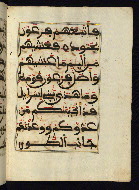 فأتبعهم فرعون
بجنوده فغشيهم
من اليم ما غشيهم
وأضل فرعون قومه
وما هدى يبني إسرءيل
قد أنجينكم من
عدوكم ووعدنكم
جانب الطور